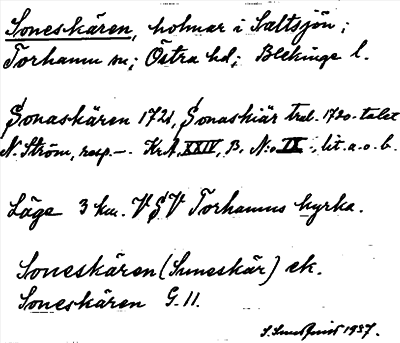 Soneskären, holmar i Saltsjön;
Torhamn sn; Östra hd; Blekinge l.
Sonaskären 1721, Sonaskiär trol. 1720-talet
N. Ström, resp.–. Kr.A, XXIV, B. N:o IX. lit. a. o. b.
Läge 3 km. VSV Torhamns kyrka.
Soneskären (Suneskär) ek.
Soneskären G. 11.
1937.